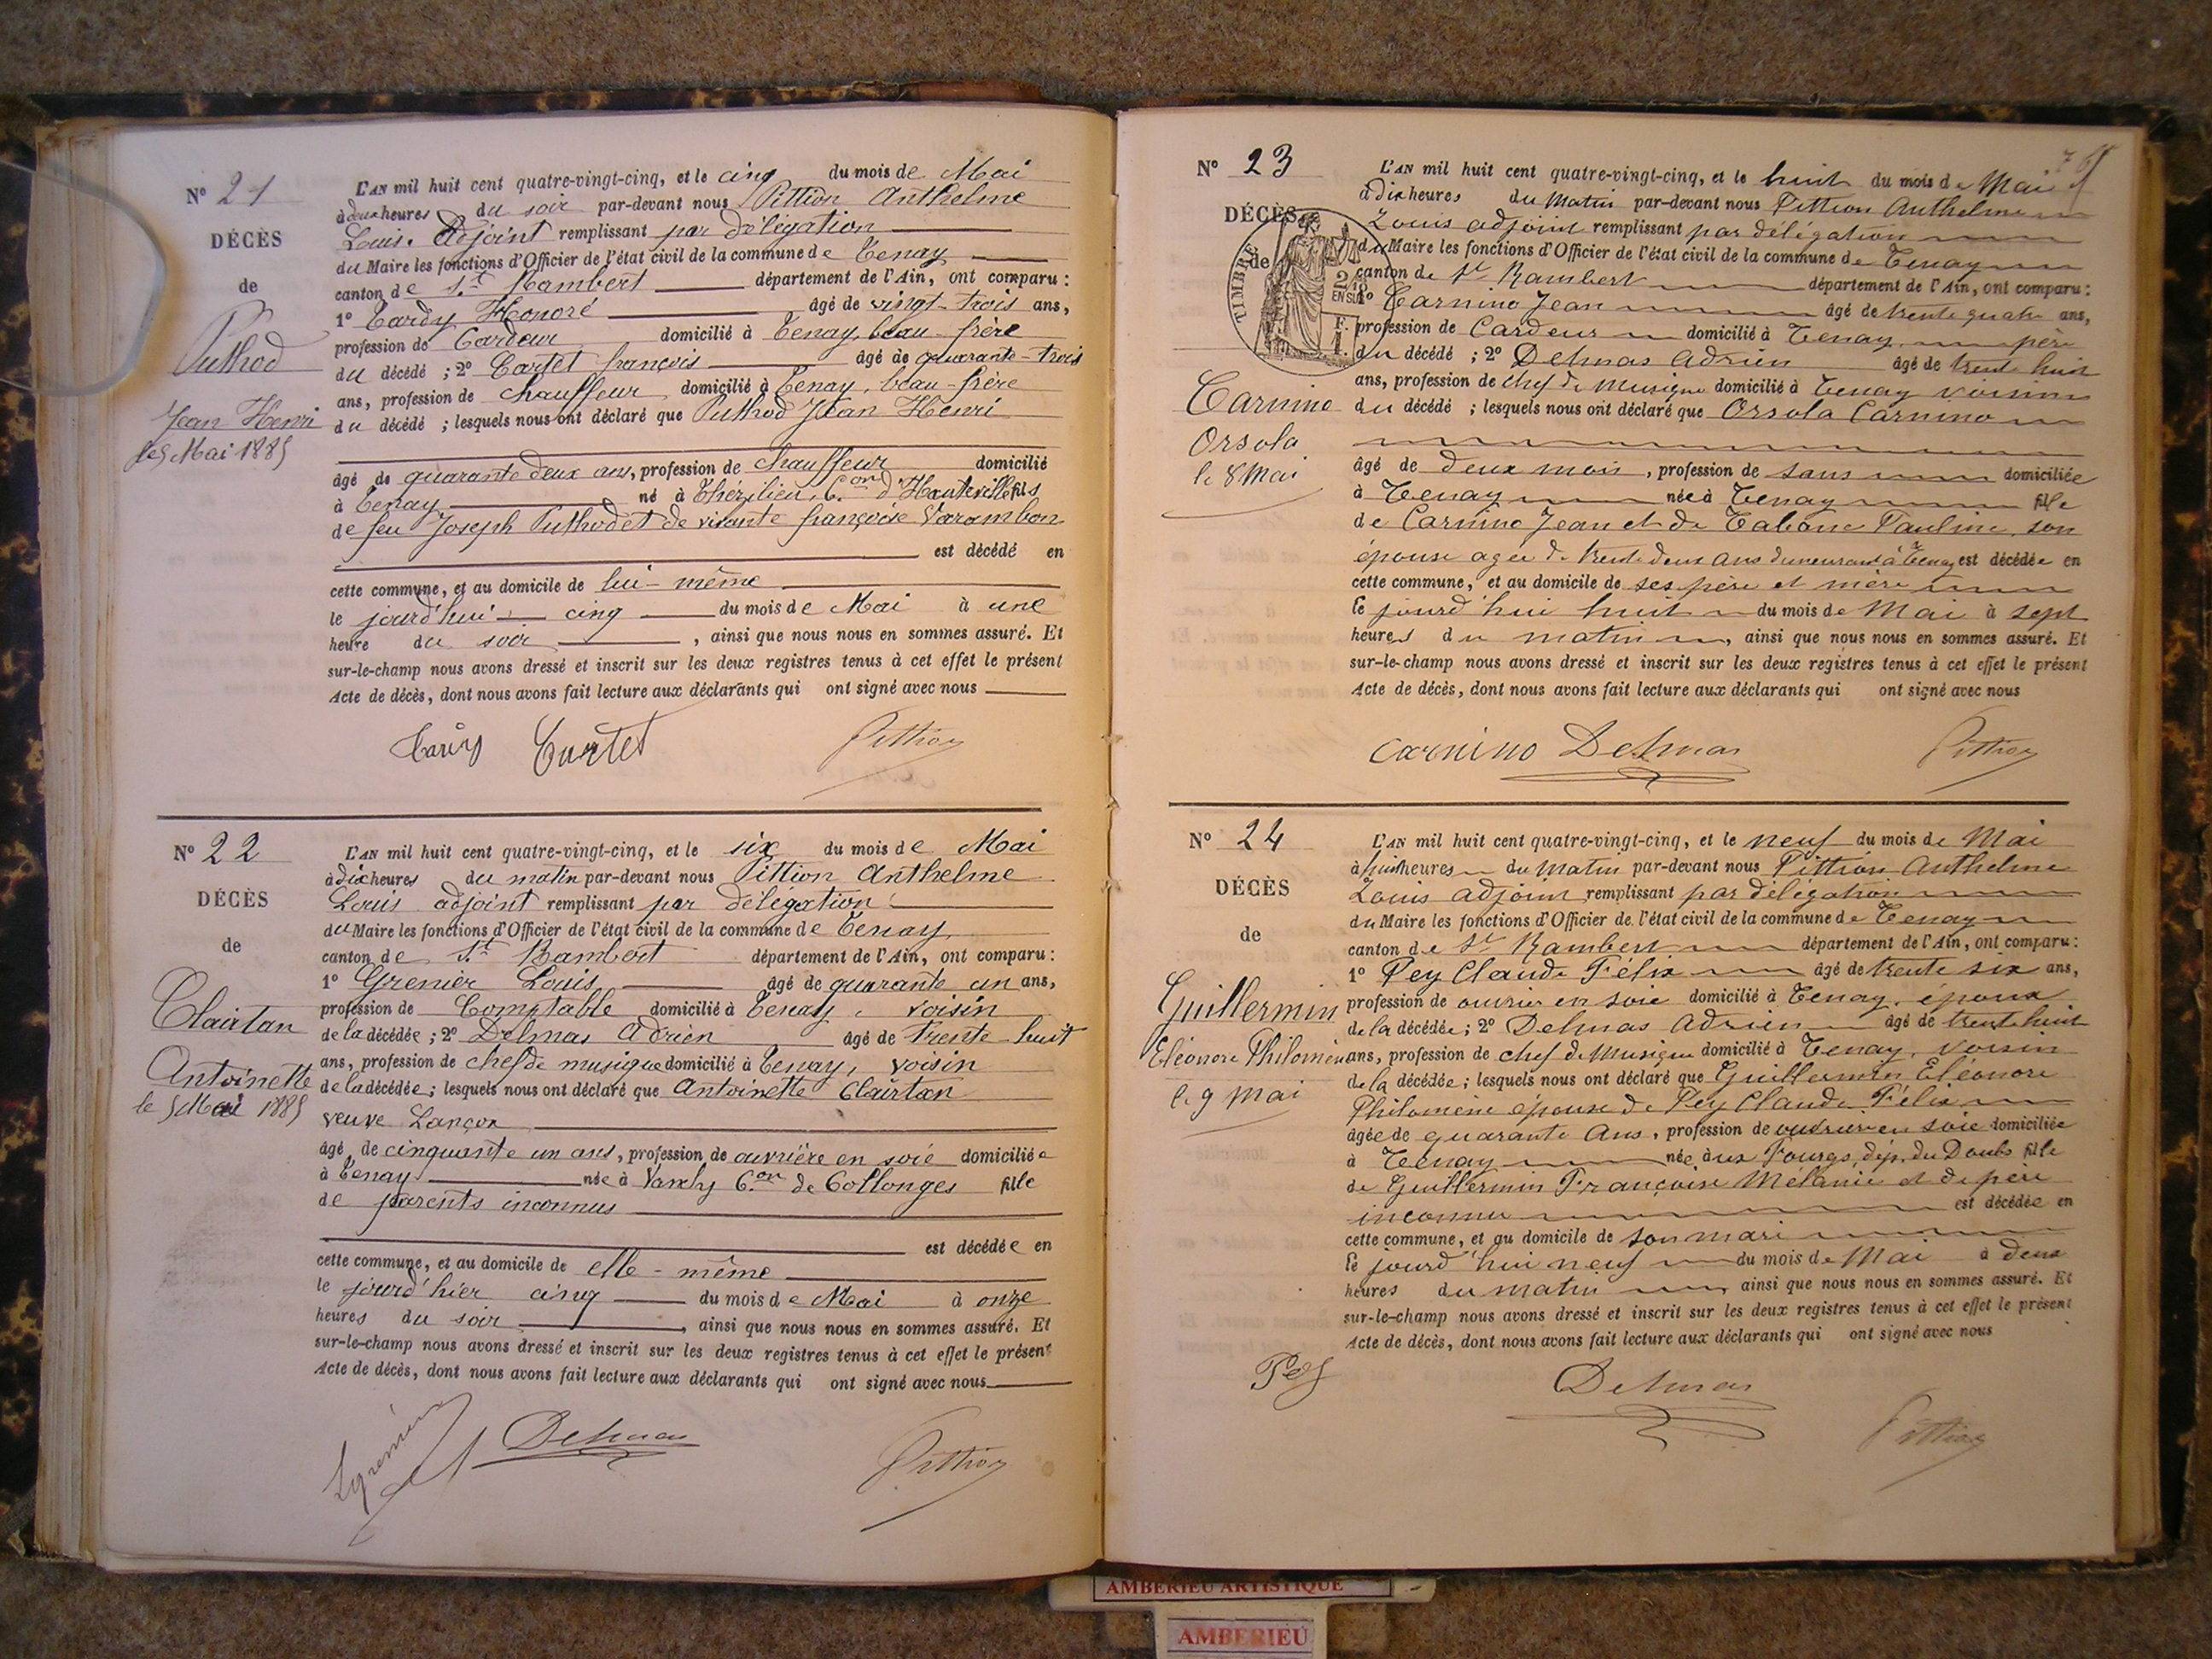 N° 21
DÉCÈS
de
Puthod
Jean Henri
le 5 Mai 1885
L'AN mil huit cent quatre-vingt-cinq, et le cinq du mois de Mai
à deux heures du soir par-devant nous Pittion Anthelme
Louis. Adjoint remplissant par délégation
du Maire les fonctions d'Officier de l'état civil de la commune de Tenay
canton de St Rambert département de l'Ain, ont comparu :
1° Tardy Honoré âgé de vingt-trois ans,
profession de Cardeur domicilié à Tenay, beau-frère
du décédé ; 2° Cartet françois âgé de quarante-trois
ans, profession de chauffeur domicilié à Tenay, beau-frère
du décédé ; lesquels nous ont déclaré que Puthod Jean Henri
âgé de quarante deux ans, profession de chauffeur domicilié
à Tenay né à Thézilieu, Con d'Hauteville fils
de feu Joseph Puthod et de vivante françoise Varambon
est décédé en
cette commune, et au domicile de lui-même
le jourd'hui cinq du mois de Mai à une
heure du soir, ainsi que nous nous en sommes assuré. Et
sur-le-champ nous avons dressé et inscrit sur les deux registres tenus à cet effet le présent
Acte de décès, dont nous avons fait lecture aux déclarants qui ont signé avec nous
Cartet Pittion
N° 22
DÉCÈS
de
Clairtan
Antoinette
le 5 Mai 1885
L'AN mil huit cent quatre-vingt-cinq, et le six du mois de Mai
à dix heures du matin par-devant nous Pittion Anthelme
Louis adjoint remplissant par délégation
du Maire les fonctions d'Officier de l'état civil de la commune de Tenay
canton de St Rambert département de l'Ain, ont comparu :
1° Grenier Louis âgé de quarante un ans,
profession de Comptable domicilié à Tenay, voisin
de la décédée ; 2° Delmas Adrien âgé de trente-huit
ans, profession de chef de musique domicilié à Tenay, voisin
de la décédée ; lesquels nous ont déclaré que Antoinette Clairtan
veuve Lançon
âgé de cinquante un ans, profession de ouvrière en soie domiciliée
à Tenay née à Con de Collonges fille
de parents inconnus
est décédée en
cette commune, et au domicile de elle-même
le jourd'hier cinq du mois de Mai à onze
heures du soir, ainsi que nous nous en sommes assuré. Et
sur-le-champ nous avons dressé et inscrit sur les deux registres tenus à cet effet le présent
Acte de décès, dont nous avons fait lecture aux déclarants qui ont signé avec nous
Lgrenier Delmas Pittion
N° 23
DÉCÈS
de
TIMBRE
2/10 EN SUS
F. 1.
Carnino
Orsola
le 8 Mai
L'AN mil huit cent quatre-vingt-cinq, et le huit du mois de Mai
à dix heures du Matin par-devant nous Pittion Anthelme
Louis adjoint remplissant par délégation
du Maire les fonctions d'Officier de l'état civil de la commune de Tenay
canton de St Rambert département de l'Ain, ont comparu :
1° Carnino Jean âgé de trente quatre ans,
profession de Cardeur domicilié à Tenay père
du décédé ; 2° Delmas Adrien âgé de trente huit
ans, profession de chef de Musique domicilié à Tenay voisin
du décédé ; lesquels nous ont déclaré que Orsola Carnino
âgé de deux mois, profession de sans domiciliée
à Tenay née à Tenay fille
de Carnino Jean et de Pauline, son
épouse agée de trente deux ans demeurant à Tenay est décédée en
cette commune, et au domicile de ses père et mère
le jourd'hui huit du mois de Mai à sept
heures du matin, ainsi que nous nous en sommes assuré. Et
sur-le-champ nous avons dressé et inscrit sur les deux registres tenus à cet effet le présent
Acte de décès, dont nous avons fait lecture aux déclarants qui ont signé avec nous
Carnino Delmas Pittion
N° 24
DÉCÈS
de
Guillermin
Eléonore Philomène
le 9 Mai
L'AN mil huit cent quatre-vingt-cinq, et le neuf du mois de Mai
à huit heures du Matin par-devant nous Pittion Anthelme
Louis adjoint remplissant par délégation
du Maire les fonctions d'Officier de l'état civil de la commune de Tenay
canton de St Rambert département de l'Ain, ont comparu :
1° Pey Claude Félix âgé de trente six ans,
profession de ouvrier en soie domicilié à Tenay, époux
de la décédée ; 2° Delmas Adrien âgé de trente huit
ans, profession de chef de Musique domicilié à Tenay, voisin
de la décédée ; lesquels nous ont déclaré que Guillermin Eléonore
Philomène épouse de Pey Claude Félix
âgée de quarante Ans, profession de ouvrière en soie domiciliée
à Tenay née aux Fourgs, dép. du Doubs fille
de Guillermin Françoise Mélanie et de père
inconnu est décédée en
cette commune, et au domicile de son mari
le jourd'hui neuf du mois de Mai à deux
heures du matin, ainsi que nous nous en sommes assuré. Et
sur-le-champ nous avons dressé et inscrit sur les deux registres tenus à cet effet le présent
Acte de décès, dont nous avons fait lecture aux déclarants qui ont signé avec nous
Pey Delmas Pittion
AMBERIEU ARTISTIQUE
AMBERIEU